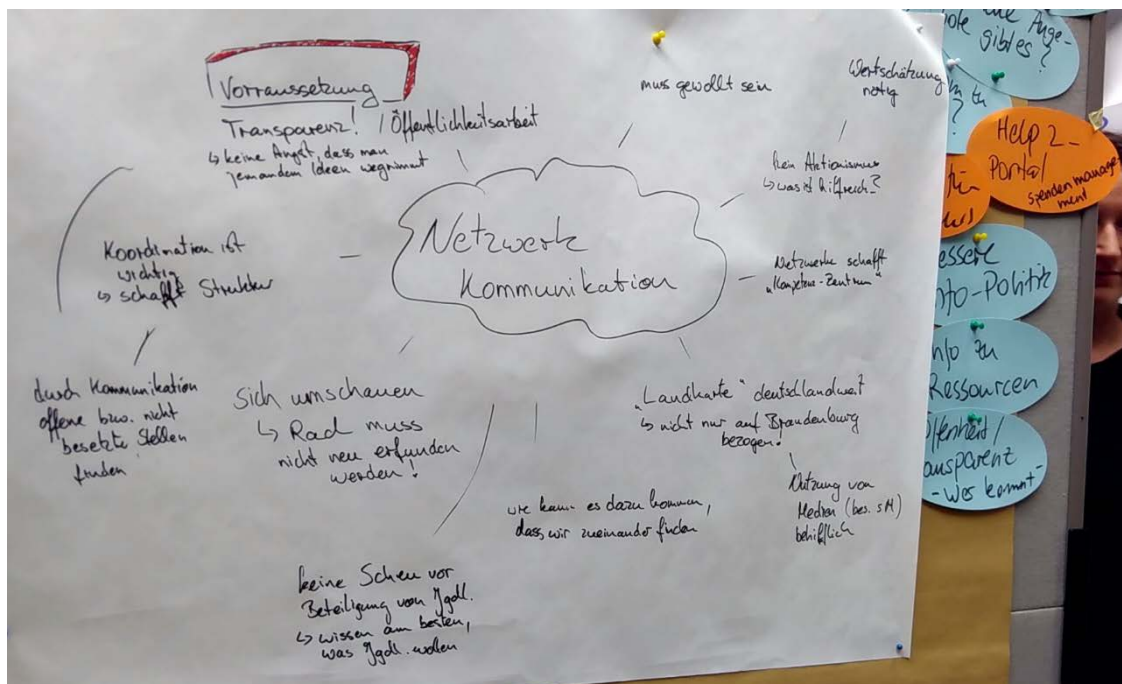 Vorraussetzung
Transparenz! / Öffentlichkeitsarbeit
↳ keine Angst, dass man
jemandem Ideen wegnimmt
muss gewollt sein
Wertschätzung
nötig
kein Aktionismus
↳ was ist hilfreich?
Netzwerk
Kommunikation
Koordination ist
wichtig
↳ schafft Struktur
Netzwerke schafft
„Kompetenz-Zentrum"
durch Kommunikation
offene bzw. nicht
besetzte Stellen
finden
sich umschauen
↳ Rad muss
nicht neu erfunden
werden!
„Landkarte" deutschlandweit
↳ nicht nur auf Brandenburg
bezogen!
Nutzung von
Medien (bes. sM)
behilflich
wie kann es dazu kommen,
dass wir zueinander finden
keine Scheu vor
Beteiligung von Jgdl.
↳ wissen am besten,
was Jgdl. wollen
Ange-
gibt es?
zu
?
Help 2_
Portal
Spendenmanage
ment
für
essere
nfo-Politik
nfo zu
Ressourcen
ffenheit/
ansparent
-Wes kommt-